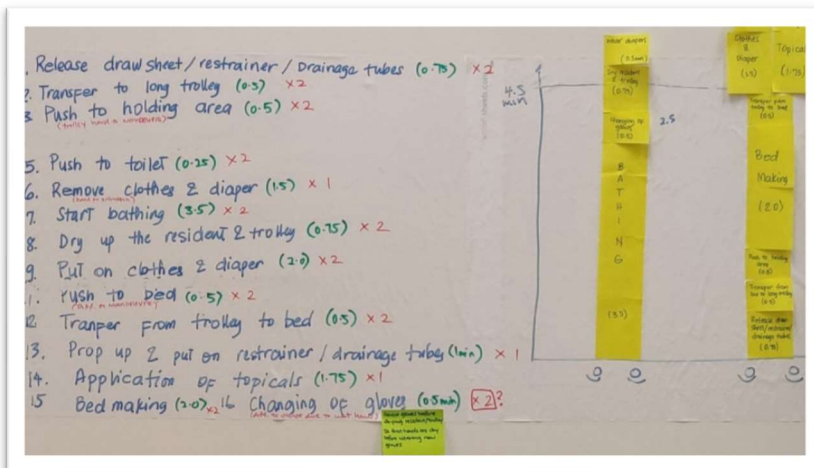 . Release draw sheet/restrainer/Drainage tubes (0.75) ×2
2. Transfer to long trolley (0.5) ×2
3. Push to holding area (0.5) ×2
5. Push to toilet (0.25) ×2
6. Remove clothes & diaper (1.5) × 1
7. Start bathing (3.5) × 2
8. Dry up the resident & trolley (0.75) × 2
9. Put on clothes & diaper (2.0) ×2
11. Push to bed (0.5) × 2
12 Tranper from trolley to bed (0.5) × 2
13. Prop up & put on restrainer/drainage tubes (1min) × 1
14. Application of topicals (1.75) ×1
15 Bed making (2.0) ×2 16 Changing of gloves (0.5min) ×2?
4.5
min
(0.75)
Changing of
gloves
(0.5)
2.5
B
A
T
H
I
N
G
(3.5)
Clothes
&
Diaper
(1.5)
Topical
(1.75)
Transfer from
(0.5)
Bed
Making
(2.0)
Push to holding
area
(0.5)
Transfer from
bed to long trolley
(0.5)
Release draw
sheet/restrainer/
drainage tubes